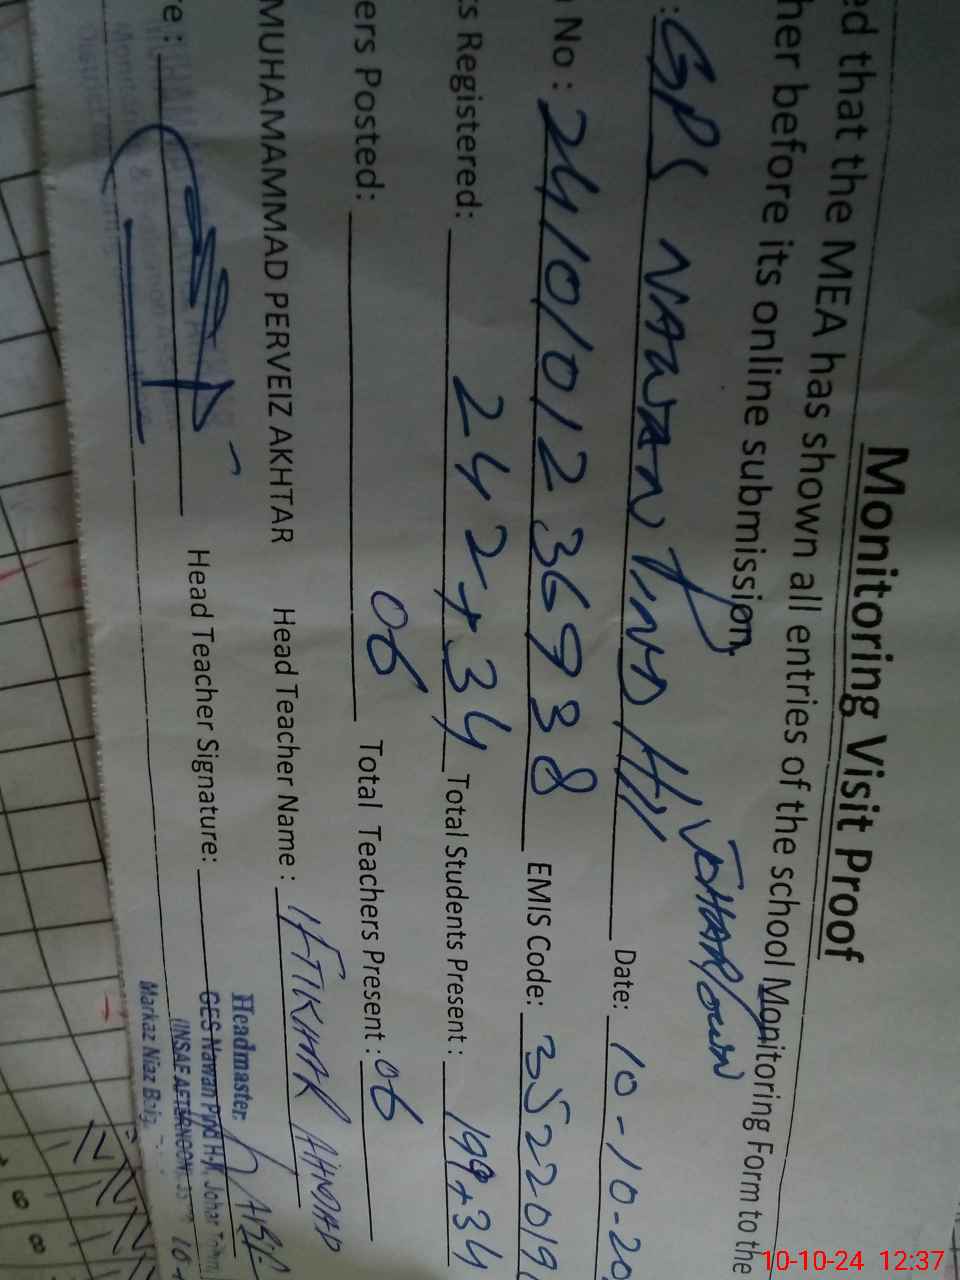 Monitoring Visit Proof
ed that the MEA has shown all entries of the school Monitoring Form to the
her before its online submission.
: GPS NAWAN PIND H/11 JOHARTOWN Date: 10-10-20
No : 24101012 36938 EMIS Code: 3522019
s Registered: 242+34 Total Students Present : 199+34
ers Posted: 06 Total Teachers Present : 06
MUHAMAMMAD PERVEIZ AKHTAR Head Teacher Name : IFTIKHAR AHMAD
re : Head Teacher Signature:
Headmaster
GES Nawan Pind H-11, Johar Town,
(INSAF AFTERNOON
Markaz Niaz Baig
10-10-24 12:37